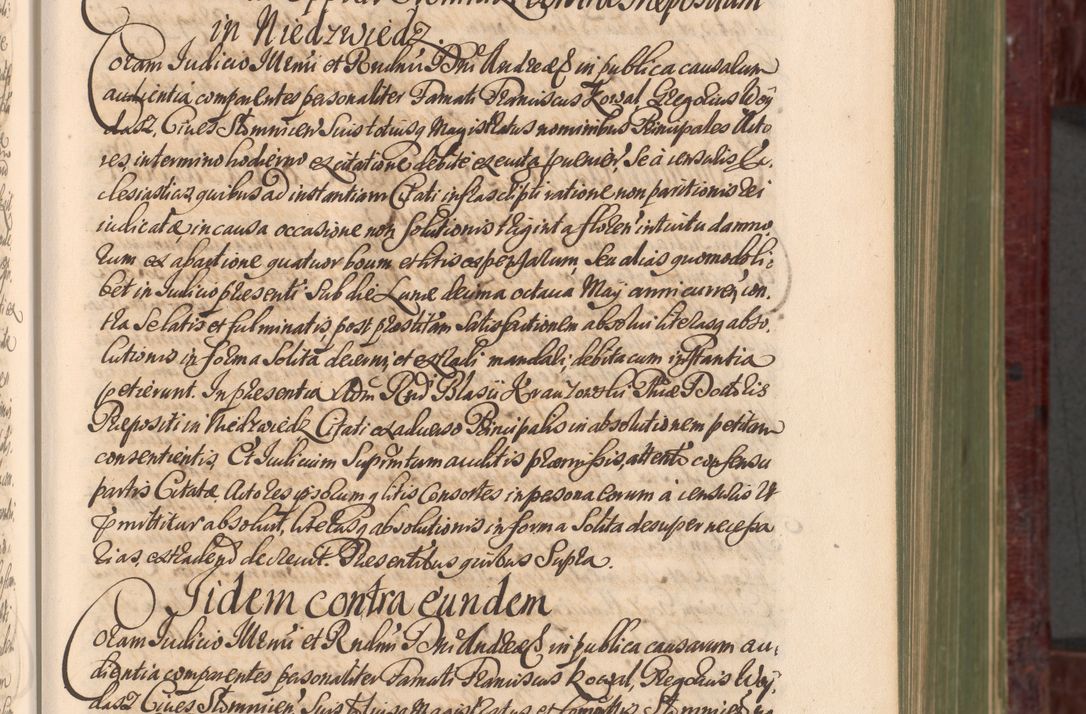 in Niedzwiedz
Coram Judicio Illrmi et Rndmi Dni Andreæ E in publica causarum
audientia comparentes personaliter Famati Franciscus Kowal, Gregorius Woy
dasz, Ciues Stomnicen Suis totiusq Magistratus nominibus Principales Acto
res, in termino hodierno ex citatione debite executa proueñ, Se à censuris Ec
clesiasticis, quibus ad instantiam Citati infrascripti ratione non paritionis rei
iudicatæ, in causa occasione non Solutionis triginta floren intuitu damno
rum ex abactione quatuor boum et litis expensarum, Seu alias quomodoli:
bet in Judicio præsenti Sub die Lunæ decima octaua Maij anni curren, con
tra Se latis et fulminatis post præstitam Satisfactionem absolui literasq abso
lutionis in forma Solita decerni, et extradi mandari, debita cum instantia
petierunt. In præsentia Adm Rnd Blasij Krauzowski Phiæ Doctoris
Præpositi in Niedzwiedz Citati ex aduerso Principalis in absolutionem petitam
consentientis, Et Judicium Suprmtum auditis præmissis, attento consensu
partis Citatæ, Actores ipsorumq litis Consortes in persona eorum à censuris Ut
præmittitur absoluit, literasq absolutionis in forma Solita desuper necessa
rias, extradend decreuit. Præsentibus quibus Supra.
Iidem contra eundem
Coram Judicio Illrmi et Rndmi Dni Andreæ E in publica causarum au:
dientia comparentes personaliter Famati Franciscus Kowal, Gregorius Woy
dasz Ciues Stomnicen Suis totiusq Magistratus et